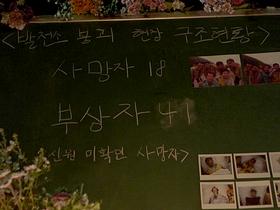 <발전소 붕괴 현장 구조현황>
사망자 18
부상자 41
신원 미확인 사망자>